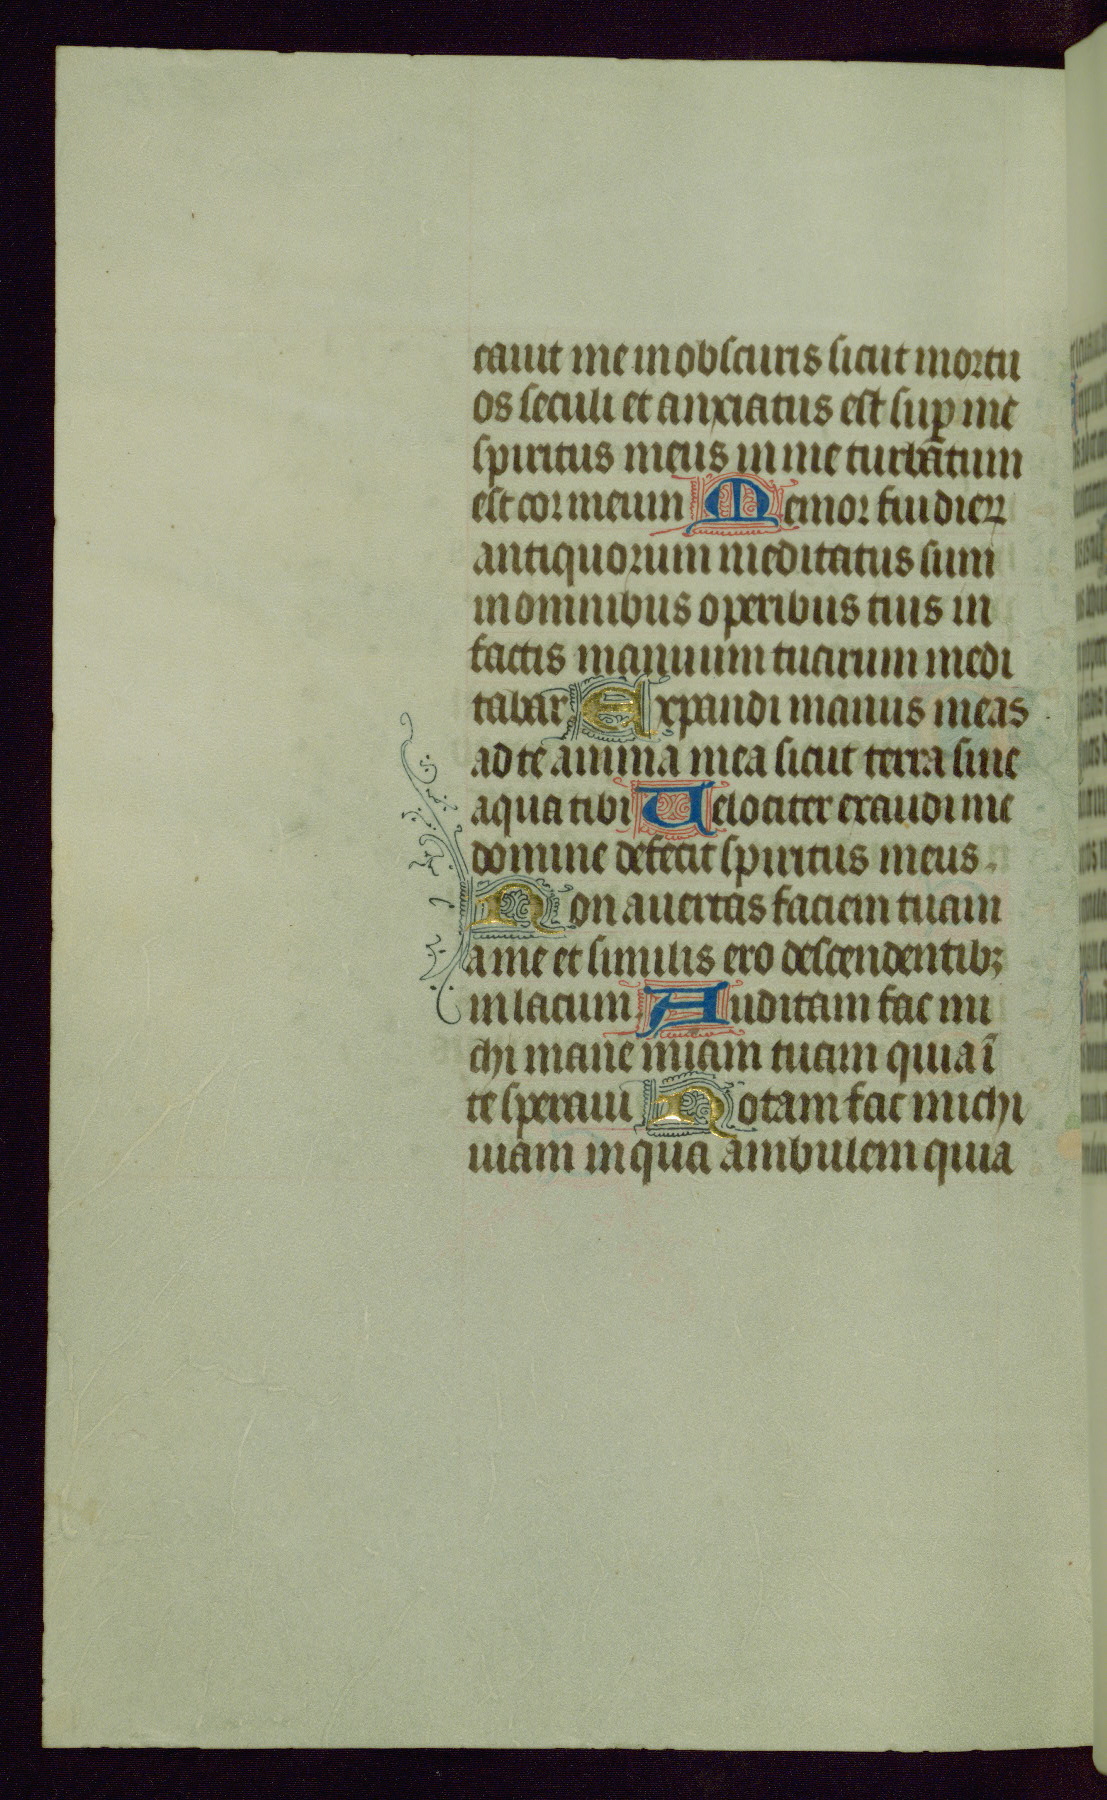 cauit me in obscuris sicut mortu
os seculi et anxiatus est sup̱ me
spiritus meus in me turbatum
est cor meum Memor fui dieꝝ
antiquorum meditatus sum
in omnibus operibus tuis in
factis manuum tuarum medi
tabar Expandi manus meas
ad te anima mea sicut terra sine
aqua tibi Uelociter exaudi me
domine defecit spiritus meus
Non auertas faciem tuam
a me et similis ero descendentibꝫ
in lacum Auditam fac mi
chi mane miam tuam quia ī
te speraui Notam fac michi
uiam in qua ambulem quia